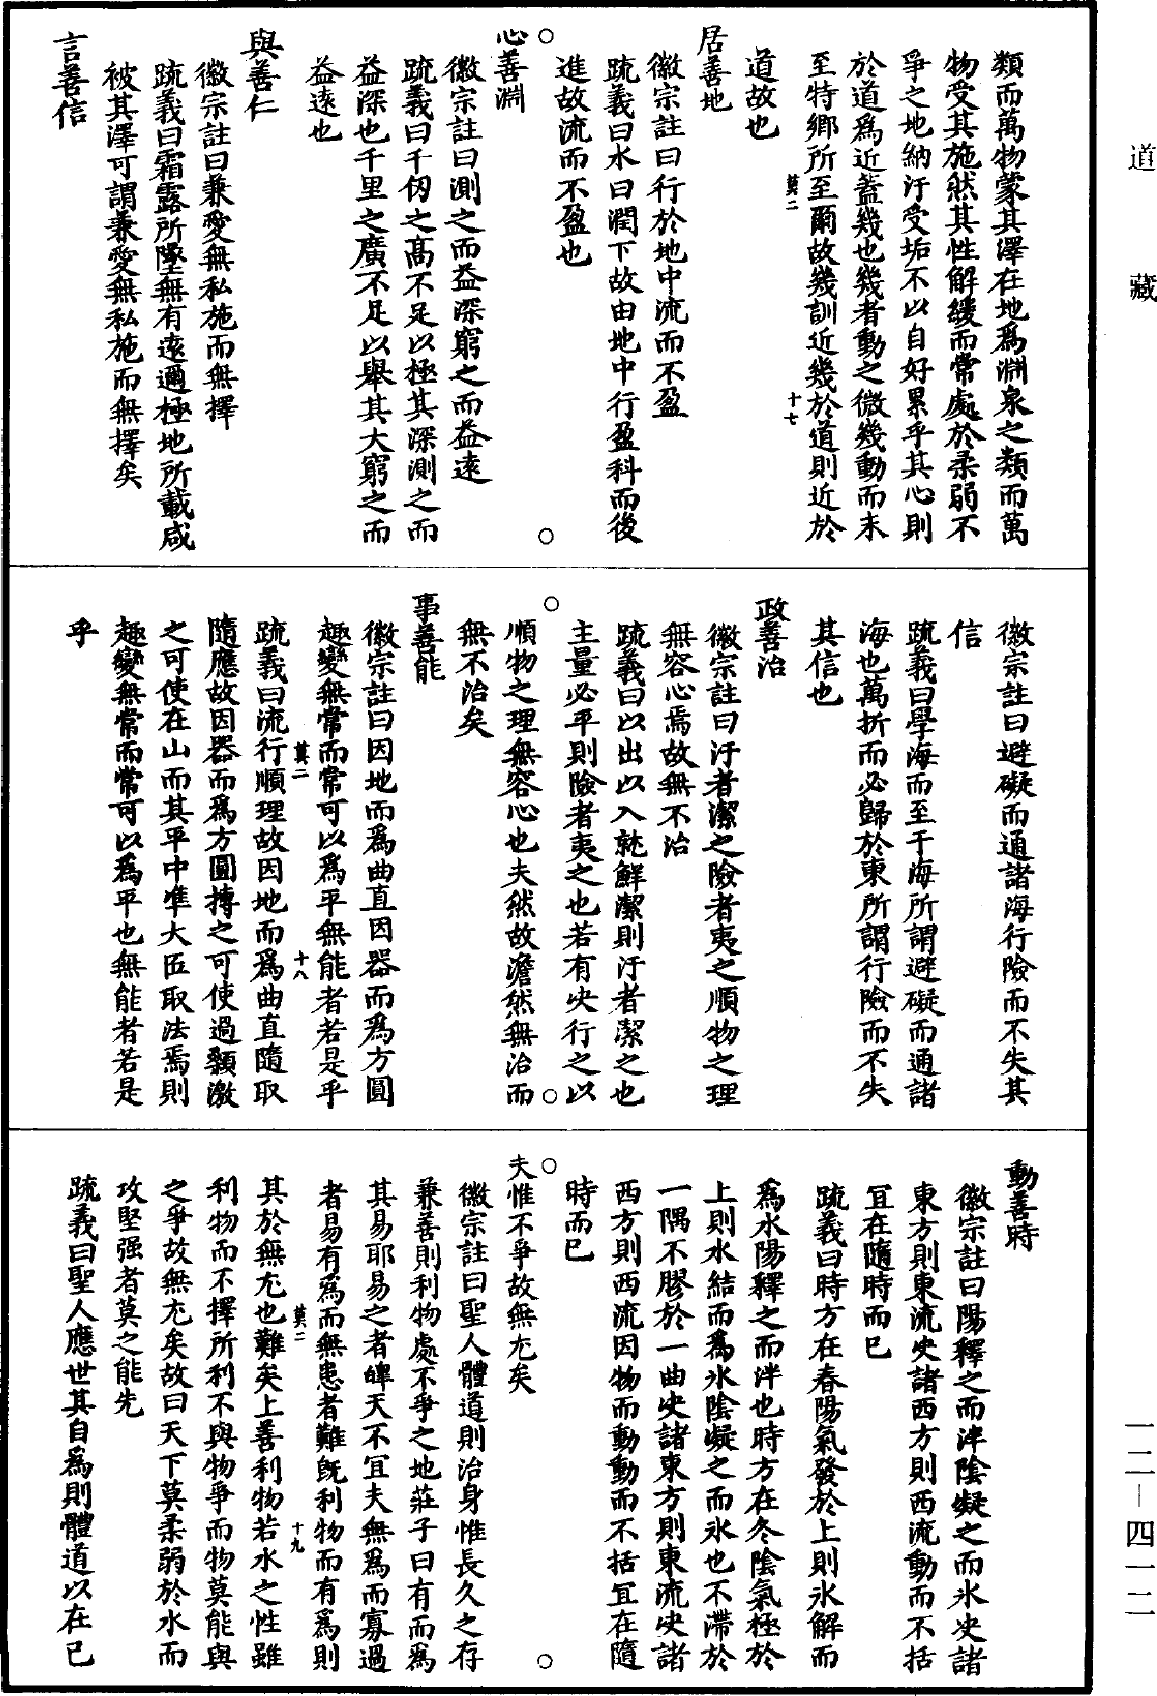 道藏
類而萬物蒙其澤在地爲淵泉之類而萬
物受其施然其性解緩而常處於柔弱不
爭之地納汙受垢不以自好累乎其心則
於道爲近蓋幾也幾者動之微幾動而未
至特鄉所至爾故幾訓近幾於道則近於
莫二 十七
道故也
居善地
徽宗註曰行於地中流而不盈
疏義曰水曰潤下故由地中行盈科而後
進故流而不盈也
心善淵
徽宗註曰測之而益深窮之而益遠
疏義曰千仞之高不足以極其深測之而
益深也千里之廣不足以舉其大窮之而
益遠也
與善仁
徽宗註曰兼愛無私施而無擇
疏義曰霜露所墜無有遠邇極地所載咸
被其澤可謂兼愛無私施而無擇矣
言善信
徽宗註曰避礙而通諸海行險而不失其
信
疏義曰學海而至于海所謂避礙而通諸
海也萬折而必歸於東所謂行險而不失
其信也
政善治
徽宗註曰汙者潔之險者夷之順物之理
無容心焉故無不治
疏義曰以出以入就鮮潔則汙者潔之也
主量必平則險者夷之也若有決行之以
順物之理無容心也夫然故澹然無治而
無不治矣
事善能
徽宗註曰因地而爲曲直因器而爲方圓
趣變無常而常可以爲平無能者若是乎
莫二 十八
疏義曰流行順理故因地而爲曲直隨取
隨應故因器而爲方圓摶之可使過顙激
之可使在山而其平中準大匠取法焉則
趣變無常而常可以爲平也無能者若是
乎
動善時
徽宗註曰陽釋之而泮陰凝之而冰決諸
東方則東流決諸西方則西流動而不括
宜在隨時而已
疏義曰時方在春陽氣發於上則冰解而
爲水陽釋之而泮也時方在冬陰氣極於
上則水結而爲冰陰凝之而冰也不滯於
一隅不膠於一曲決諸東方則東流決諸
西方則西流因物而動動而不括宜在隨
時而已
夫惟不爭故無尤矣
徽宗註曰聖人體道則治身惟長久之存
兼善則利物處不爭之地莊子曰有而爲
其易耶易之者皞天不宜夫無爲而寡過
者易有爲而無患者難旣利物而有爲則
莫二 十九
其於無尤也難矣上善利物若水之性雖
利物而不擇所利不與物爭而物莫能與
之爭故無尤矣故曰天下莫柔弱於水而
攻堅强者莫之能先
疏義曰聖人應世其自爲則體道以在已
一二—四一二